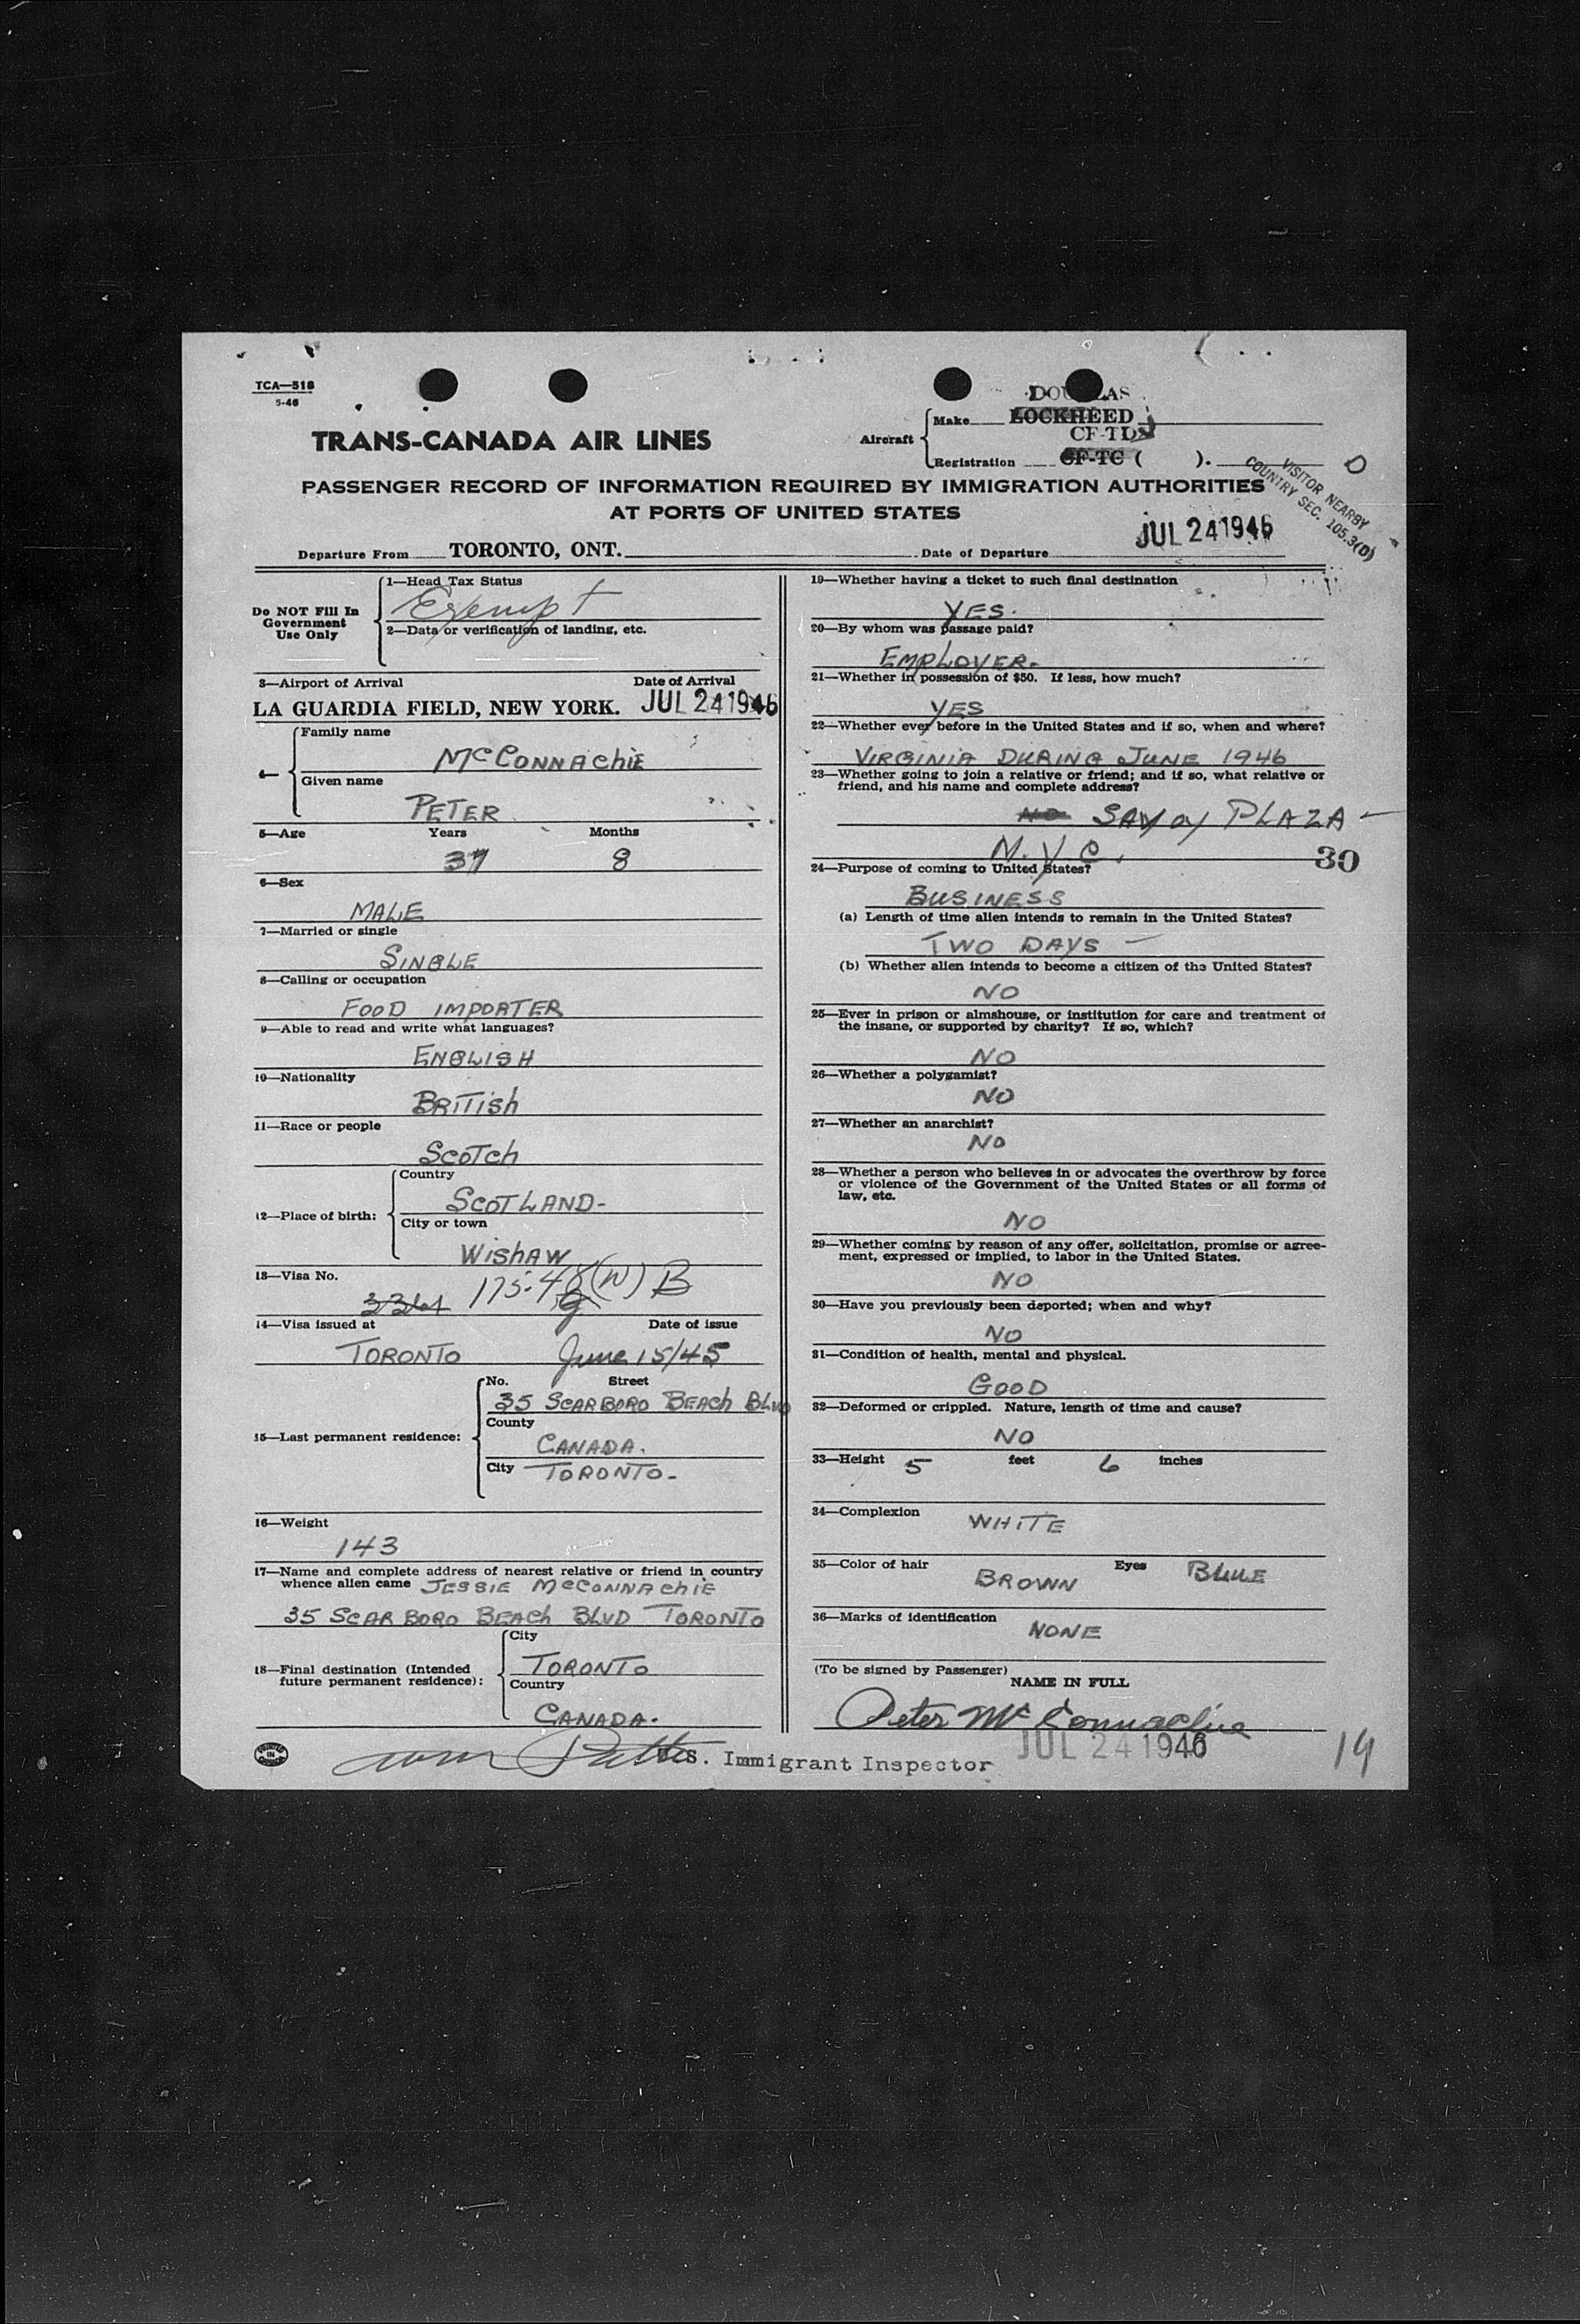 TCA—518
5-46
TRANS-CANADA AIR LINES
Aircraft
Make
DOUGLAS
LOCKHEED
CF-TD
Registration CF-TC ( ).
D
VISITOR NEARBY
COUNTRY SEC. 105.3(D)
PASSENGER RECORD OF INFORMATION REQUIRED BY IMMIGRATION AUTHORITIES
AT PORTS OF UNITED STATES
Departure From TORONTO, ONT. Date of Departure JUL 24 1946
Do NOT Fill In
Government
Use Only
1—Head Tax Status
Exempt
2—Data or verification of landing, etc.
3—Airport of Arrival Date of Arrival
LA GUARDIA FIELD, NEW YORK. JUL 24 1946
Family name
McCONNACHIE
4
Given name
PETER
5—Age Years Months
37 8
6—Sex
MALE
7—Married or single
SINGLE
8—Calling or occupation
FOOD IMPORTER
9—Able to read and write what languages?
ENGLISH
10—Nationality
BRITISH
11—Race or people
SCOTCH
12—Place of birth:
Country
SCOTLAND-
City or town
WISHAW
13—Visa No.
175-48(W) B
14—Visa issued at Date of issue
TORONTO June 15/45
15—Last permanent residence:
No. Street
35 SCARBORO BEACH BLVD
County
CANADA.
City TORONTO-
16—Weight
143
17—Name and complete address of nearest relative or friend in country
whence alien came JESSIE McCONNACHIE
35 SCARBORO BEACH BLVD TORONTO
18—Final destination (Intended
future permanent residence):
City
TORONTO
Country
CANADA.
PRINTED
IN
CANADA
U.S. Immigrant Inspector
19—Whether having a ticket to such final destination
YES.
20—By whom was passage paid?
EMPLOYER-
21—Whether in possession of $50. If less, how much?
YES
22—Whether ever before in the United States and if so, when and where?
VIRGINIA DURING JUNE 1946
23—Whether going to join a relative or friend; and if so, what relative or
friend, and his name and complete address?
NO SAVOY PLAZA —
N.Y.C. 30
24—Purpose of coming to United States?
BUSINESS
(a) Length of time alien intends to remain in the United States?
TWO DAYS —
(b) Whether alien intends to become a citizen of the United States?
NO
25—Ever in prison or almshouse, or institution for care and treatment of
the insane, or supported by charity? If so, which?
NO
26—Whether a polygamist?
NO
27—Whether an anarchist?
NO
28—Whether a person who believes in or advocates the overthrow by force
or violence of the Government of the United States or all forms of
law, etc.
NO
29—Whether coming by reason of any offer, solicitation, promise or agree-
ment, expressed or implied, to labor in the United States.
NO
30—Have you previously been deported; when and why?
NO
31—Condition of health, mental and physical.
GOOD
32—Deformed or crippled. Nature, length of time and cause?
NO
33—Height 5 feet 6 inches
34—Complexion
WHITE
35—Color of hair BROWN Eyes BLUE
36—Marks of identification
NONE
(To be signed by Passenger)
NAME IN FULL
Peter McConnachie
JUL 24 1946
19